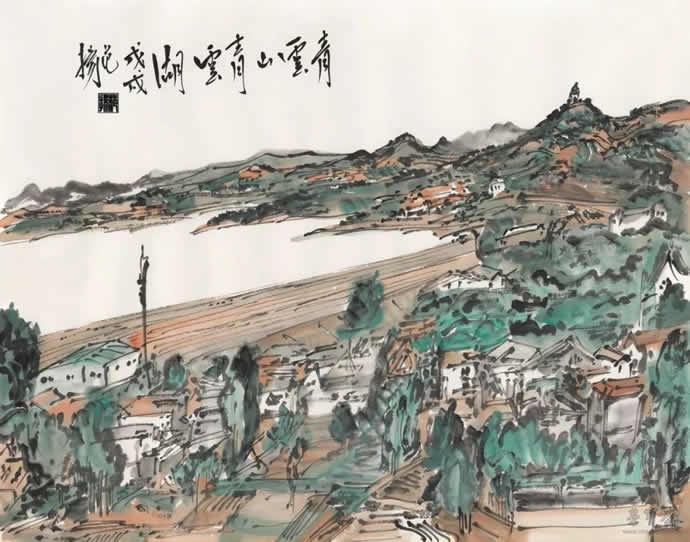 青雲山青雲湖戊戌范揚